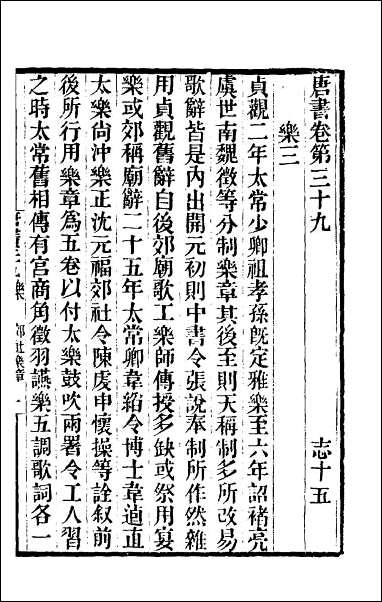 唐書卷第三十九　志十五
樂三
貞觀二年太常少卿祖孝孫既定雅樂至六年詔褚亮
虞世南魏徵等分制樂章其後至則天稱制多所改易
歌辭皆是內出開元初則中書令張說奉制所作然雜
用貞觀舊辭自後郊廟歌工樂師傳授多缺或祭用宴
樂或郊稱廟辭二十五年太常卿韋縚令博士韋逌直
太樂尚沖樂正沈元福郊社令陳虔申懷操等詮叙前
後所行用樂章為五卷以付太樂鼓吹兩署令工人習
之時太常舊相傳有宮商角徵羽讌樂五調歌詞各一
郊社樂章